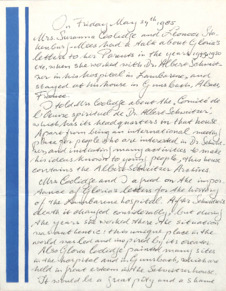 On Friday May 24th 1985
Mrs. Suzanne Coolidge and
had a talk about Gloria's
letters to her Parents in the years
when she worked with Dr. Albert Schweitzer
in his hospital in Lambarene, and
stayed at his house in Gunsbach, Alsace
France.
I told Mrs Coolidge about the, Comité de
Dr. Albert Schweitzer,
which has its headquarters in that house.
Apart from being an international meeting
place for people who are interested in Dr. Schweitzer
and many activities to make
his ideas known to many people, this house
contains the Albert Schweitzer Archives
Mrs Coolidge and I agreed on the importance
of Gloria's letters for the history
of the Lambarene hospital. After Schweitzer's
death it changed considerably, but during
the years she worked there the situation
was authentic: the unique place in the
world marked and inspired by its creator.
Mrs Gloria Coolidge painted many sites
in the hospital and in Gunsbach, which are
held in great esteem at the Schweitzer house.
It would be a great pity and a shame